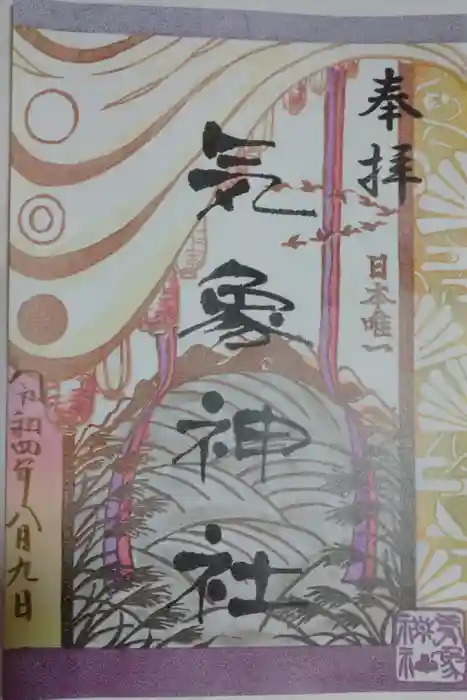 奉拝
日本唯一
気象神社
令和四年八月九日
気象
神社